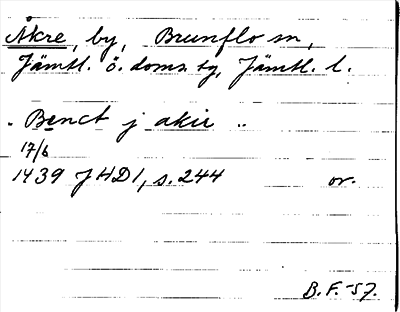 Åkre, by, Brunflo sn,
Jämtl. ö. doms. tg, Jämtl. l.
. Benct j akir ..
17/6
1439 JHD1, s. 244 or.
B. F. -57.